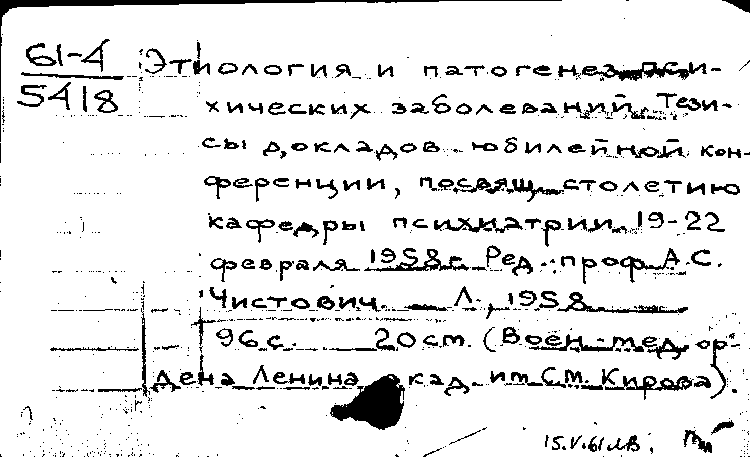 61-4
5418
Этиология и патогенез пси-
хических заболеваний. Тези-
сы докладов юбилейной кон-
ференции, посвящ. столетию
кафедры психиатрии 19-22
февраля 1958 г. Ред. проф. А.С.
Чистович. — Л., 1958
96 с. 20 см. (Воен.-мед. ор-
дена Ленина акад. им С.М. Кирова).
15.V.61